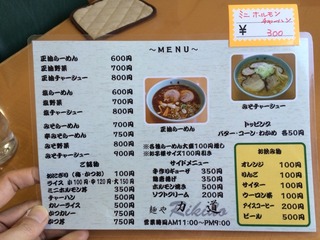 ミニ ホルモン
¥ 300
～MENU～
正油らーめん 600円
正油野菜 700円
正油チャーシュー 800円
塩らーめん 600円
塩野菜 700円
塩チャーシュー 800円
みそらーめん 700円
辛みそらーめん 750円
みそ野菜 800円
みそチャーシュー 900円
ご飯物
おにぎり (梅・かつお) 100円
ライス 小100円・中120円・大150円
ミニホルモン丼 350円
チャーハン 500円
カレーライス 500円
かつカレー 750円
かつ丼 750円
正油らーめん
みそチャーシュー
トッピング
バター・コーン・わかめ 各50円
※各種らーめん大盛100円増し
※お子様サイズ100円引き
サイドメニュー
手作りギョーザ 350円
鶏唐揚げ 350円
ホルモン焼き 500円
ソフトクリーム 200円
麺や 力道
Rikido
営業時間AM11:00～PM9:00
お飲み物
オレンジ 100円
りんご 100円
サイダー 100円
ウーロン茶 100円
アイスコーヒー 200円
ビール 500円